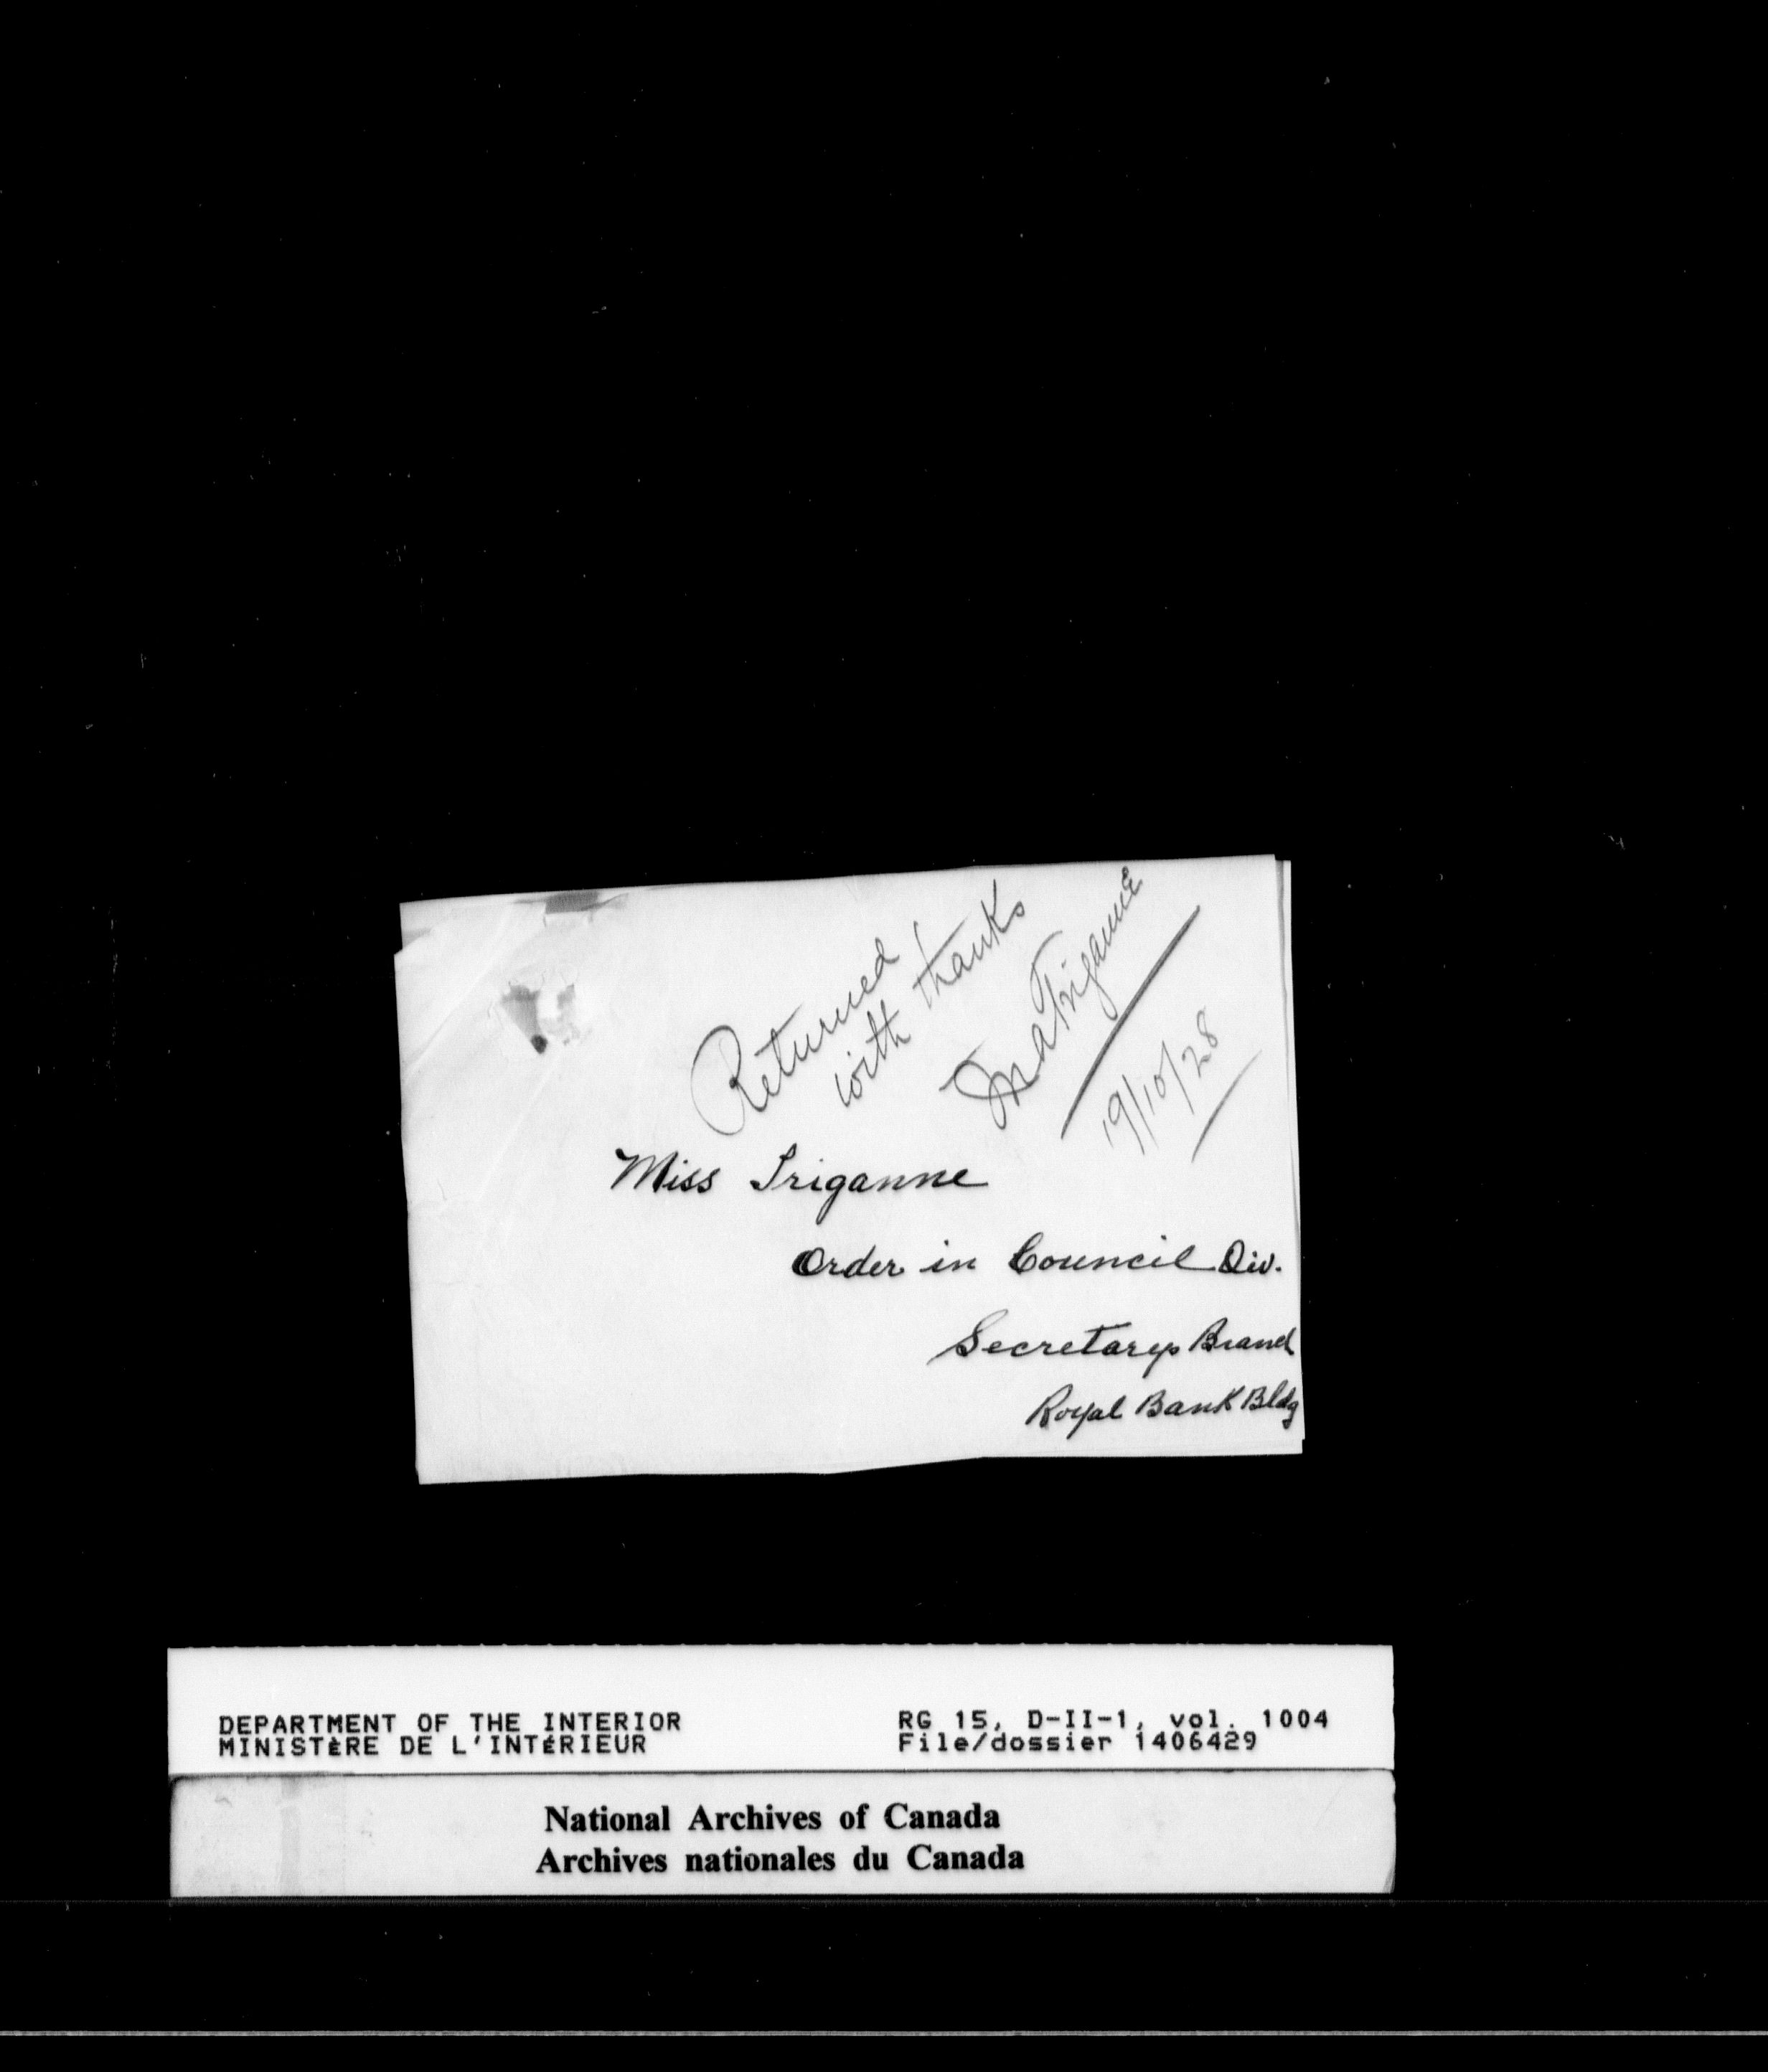 Returned
with thanks
M A Triganne
19/10/28
Miss Triganne
Order in Council Div.
Secretarys Branch
Royal Bank Bldg
DEPARTMENT OF THE INTERIOR
MINISTÈRE DE L'INTÉRIEUR
RG 15, D-II-1, vol. 1004
File/dossier 1406429
National Archives of Canada
Archives nationales du Canada